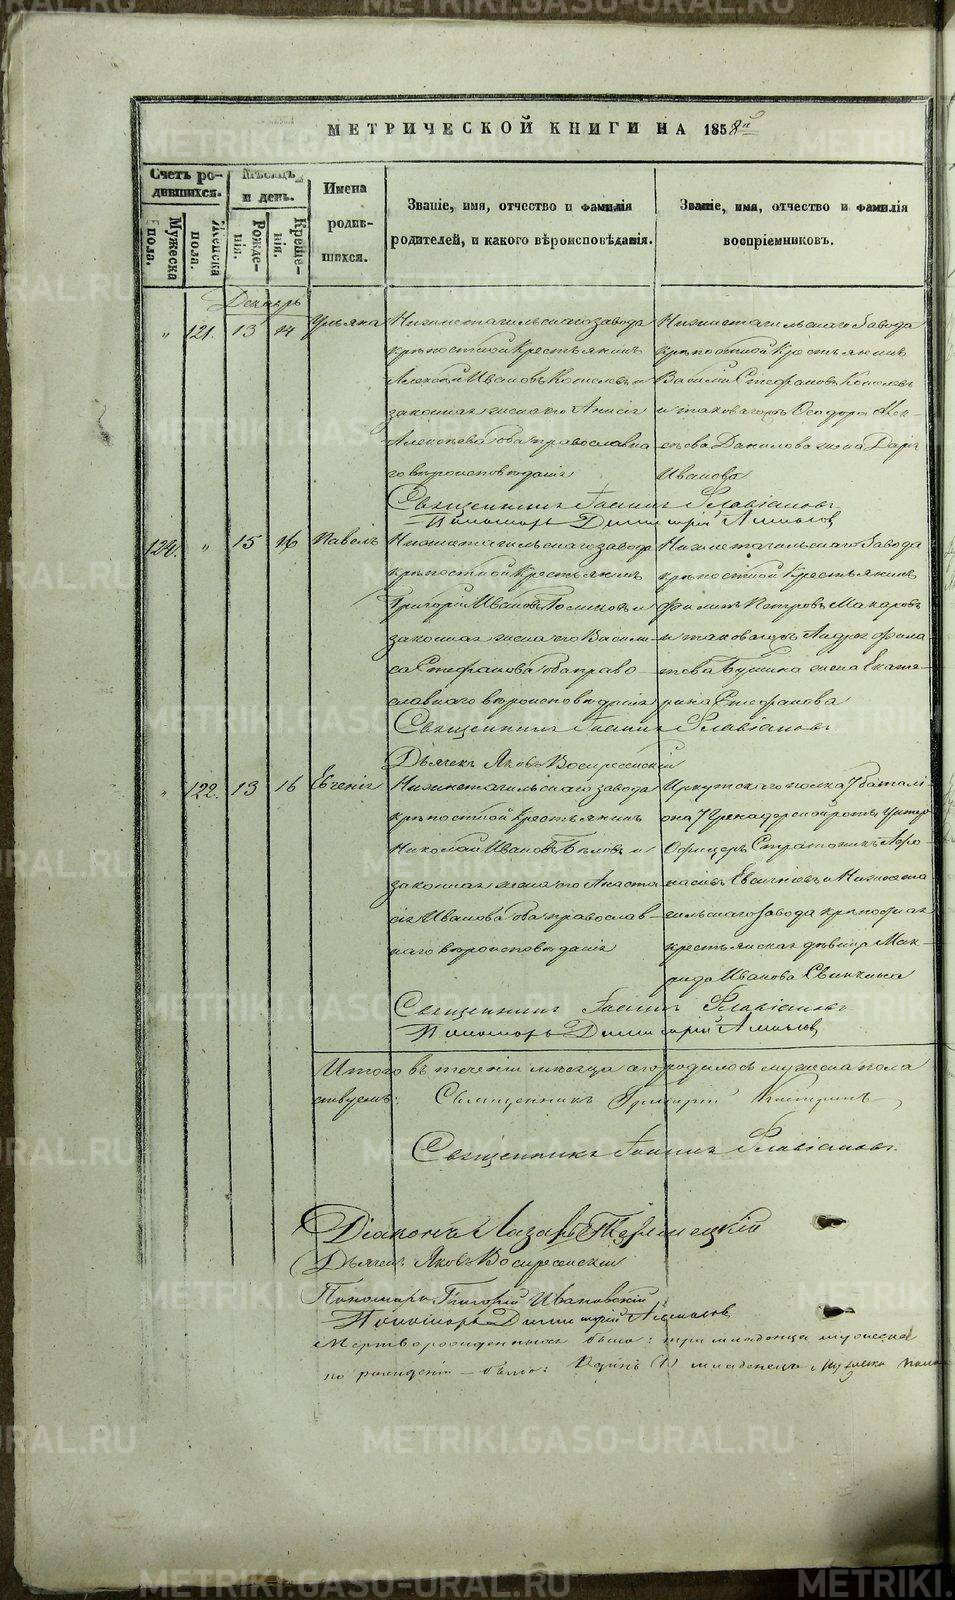 МЕТРИЧЕСКОЙ КНИГИ НА 1858й
Счетъ ро-
дившихся.
Мужеска
пола.
Женска
пола.
Мѣсяцъ
и день.
Рожде-
нія.
Креще-
нія.
Имена
родив-
шихся.
Званіе, имя, отчество и фамилія
родителей, и какого вѣроисповѣданія.
Званіе, имя, отчество и фамилія
воспріемниковъ.
Декабрь
„ 121. 13 14 Ульяна
Нижнетагильскаго завода
крѣпостной Крестьянинъ
Алексѣй Ивановъ и
законная жена его Анисія
Алексѣева оба православна
го вѣроисповѣданія
Нижнетагильскаго Завода
крѣпостной Крестьянинъ
Василій Стефановъ
и таковагожъ Ѳеодора Алек-
сѣева Данилова жена Дарья
Иванова
Священникъ Іоаннъ Флавіановъ
Пономарь Димитрій
„ 15 16 Павелъ
Нижнетагильскаго завода
крѣпостной Крестьянинъ
Григорій Ивановъ и
законная жена его Васили-
са Стефанова оба право-
славнаго вѣроисповѣданія
Нижнетагильскаго Завода
крѣпостной Крестьянинъ
Филипъ Петровъ Макаровъ
и таковагожъ Андрея Фила
това жена Екате-
рина Стефанова
Священникъ Іоаннъ Флавіановъ
Дьячекъ Яковъ Воскресенскій
„ 122. 13 16 Евгенія
Нижнетагильскаго завода
крѣпостной Крестьянинъ
Николай Ивановъ Бѣловъ и
законная жена его Анаста
сія Иванова оба православ-
наго вѣроисповѣданія
Иркутскаго полка 7 баталі
она 7 Гренадерской роты Унтер
Офицеръ Стратоникъ Афо
насьевъ и Нижнета
гильскаго Завода крѣпосная
крестьянская дѣвица Мак-
рида Иванова
Священникъ Іоаннъ Флавіановъ
Пономарь Димитрій
Итого въ теченіи мѣсяца сего родилось мужеска пола
Священникъ Григорій
Священникъ Іоаннъ Флавіановъ.
Діаконъ Лазарь
Дьячекъ Яковъ Воскресенскій
Пономарь Григорій Ивановскій
Пономарь Димитрій
Мертворожденныхъ было: три младенца мужеска
по рожденіи – было: Одинъ (1) младенецъ мужеска пола
METRIKI.GASO-URAL.RU